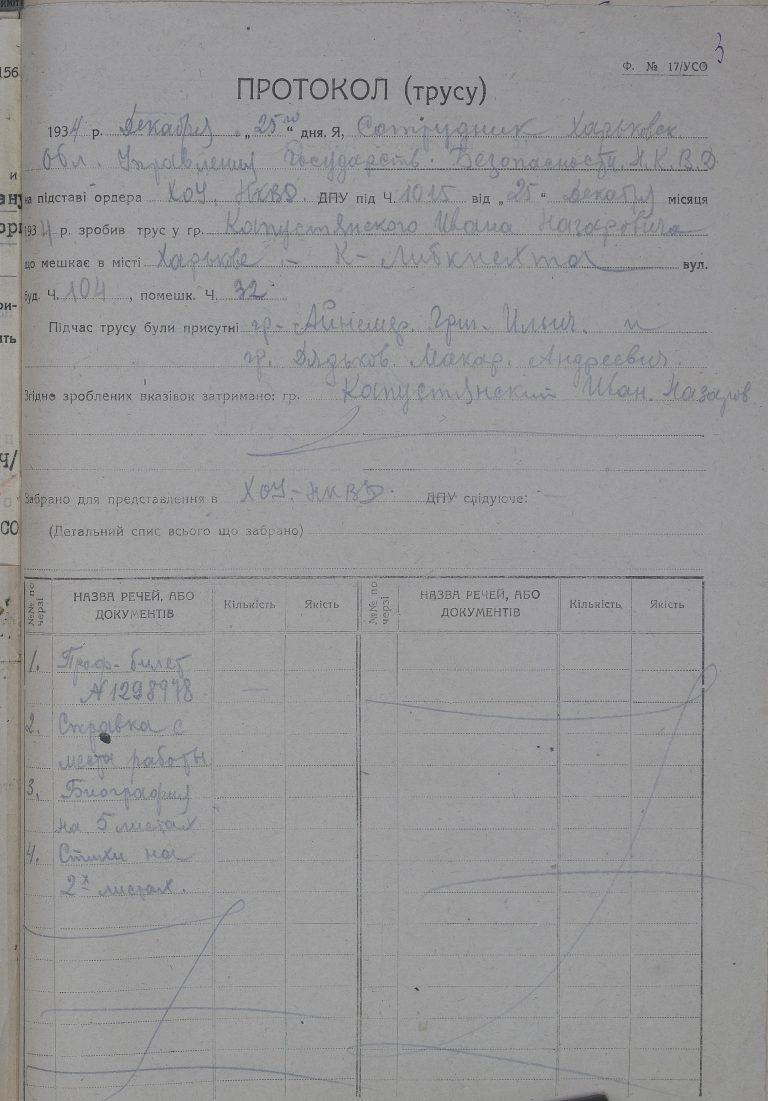 3
Ф. № 17/УСО
ПРОТОКОЛ (трусу)
1934 р. Декабря „25го“ дня. Я, Сотрудник Харьковск
Обл. Управления Государств. Безопасности Н.К.В.Д
на підставі ордера ХОУ, НКВД. ДПУ під Ч. 1015 від „25“ Декабря місяця
1934 р. зробив трус у гр. Капустянского Ивана Назаровича
що мешкає в місті Харькове – К-Либкнехта вул.
буд. Ч. 104, помешк. Ч. 32
Підчас трусу були присутні гр- Григ. Ильич. и
гр. Дядьков. Макар. Андреевич.
Згідно зроблених вказівок затримано: гр. Капустянский Иван. Назаров
Забрано для представлення в ХОУ-НКВД. ДПУ слідуюче:
(Детальний спис всього що забрано)
№№ по черзі НАЗВА РЕЧЕЙ, АБО ДОКУМЕНТІВ Кількість Якість №№ по черзі НАЗВА РЕЧЕЙ, АБО ДОКУМЕНТІВ Кількість Якість
1. Проф-билет
№ 1298978 —
2. Справка с
места работы
3. Биография
на 5 листах
4. Стихи на
2х листах.
156
и
ить
СО